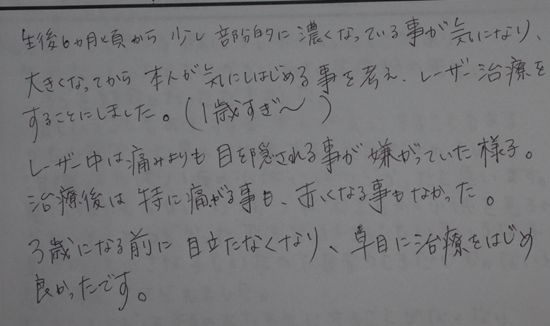 生後6カ月頃から少し部分的に濃くなっている事が気になり、
大きくなってから本人が気にしはじめる事を考え、レーザー治療を
することにしました。(1歳すぎ〜)
レーザー中は痛みよりも目を隠される事が嫌がっていた様子。
治療後は特に痛がる事も、赤くなる事もなかった。
3歳になる前に目立たなくなり、早目に治療をはじめ
良かったです。